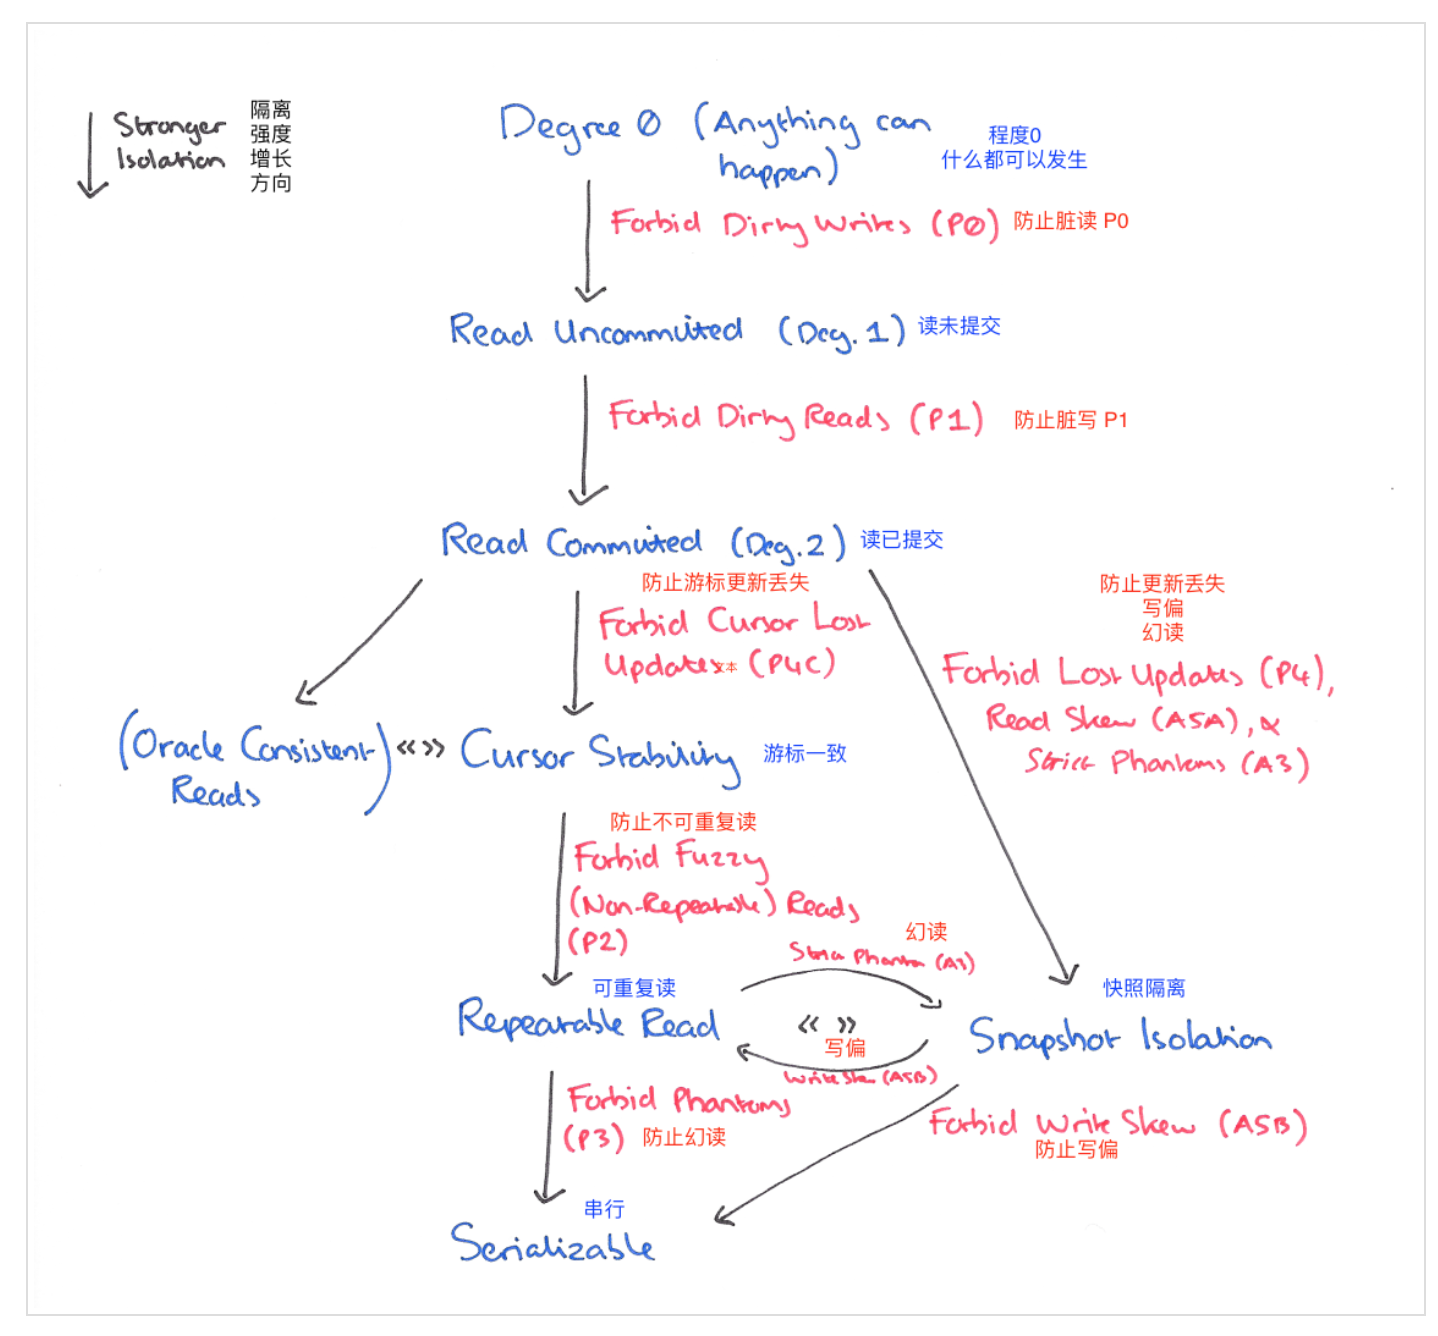 Stronger
Isolation
隔离
强度
增长
方向
Degree 0 (Anything can
happen)
程度0
什么都可以发生
Forbid Dirty Writes (P0)
防止脏读 P0
Read Uncommitted (Deg. 1)
读未提交
Forbid Dirty Reads (P1)
防止脏写 P1
Read Committed (Deg. 2)
读已提交
防止游标更新丢失
Forbid Cursor Lost
Updates (P4C)
防止更新丢失
写偏
幻读
Forbid Lost Updates (P4),
Read Skew (A5A), &
Strict Phantoms (A3)
(Oracle Consistent
Reads)
«»
Cursor Stability
游标一致
防止不可重复读
Forbid Fuzzy
(Non-Repeatable) Reads
(P2)
幻读
Strict Phantom (A3)
可重复读
Repeatable Read
« »
写偏
Write Skew (A5B)
快照隔离
Snapshot Isolation
Forbid Phantoms
(P3)
防止幻读
Forbid Write Skew (A5B)
防止写偏
串行
Serializable